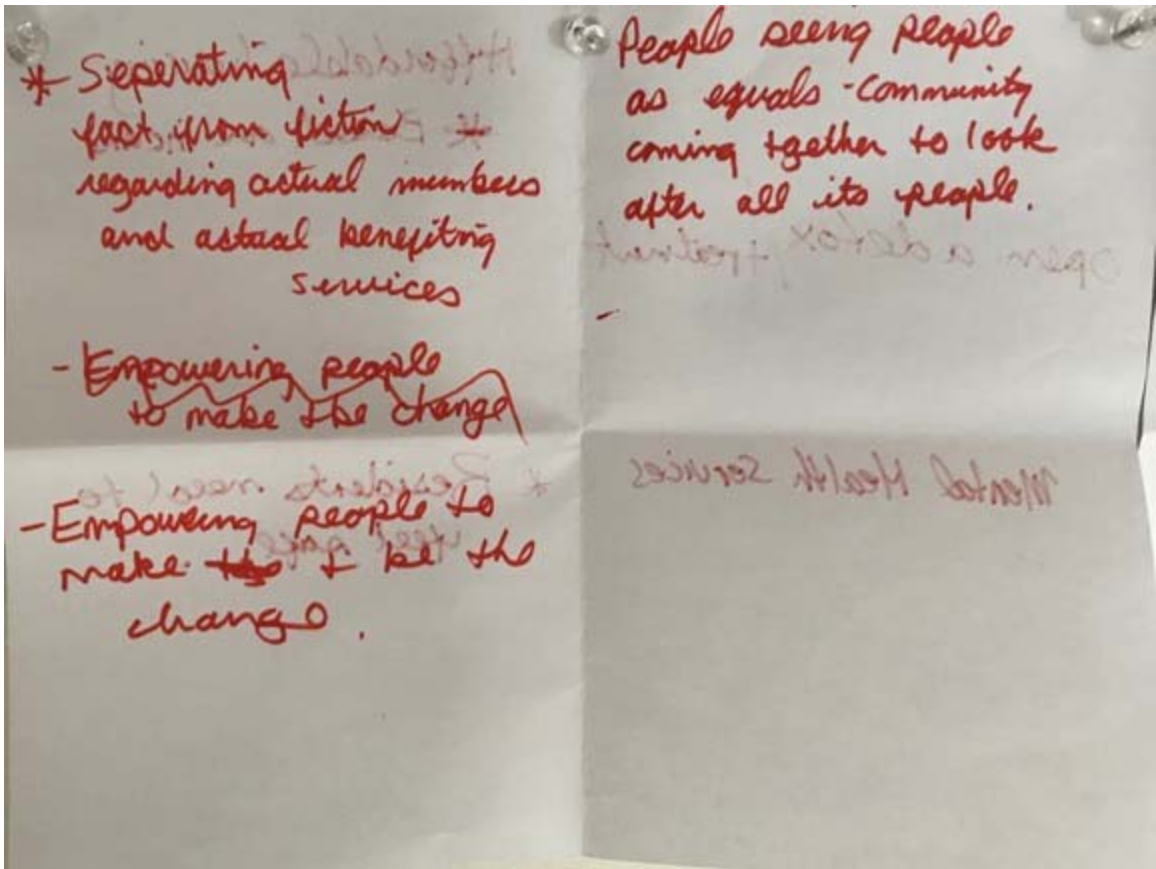 * Seperating
fact from fiction
regarding actual numbers
and actual benefiting
services
- Empowering people
to make the change
- Empowering people to
make the + be the
change.
People seeing people
as equals - Community
coming together to look
after all its people.
Affordable
Open a detox, treatment
* Residents need to
feel safe
Mental Health Services